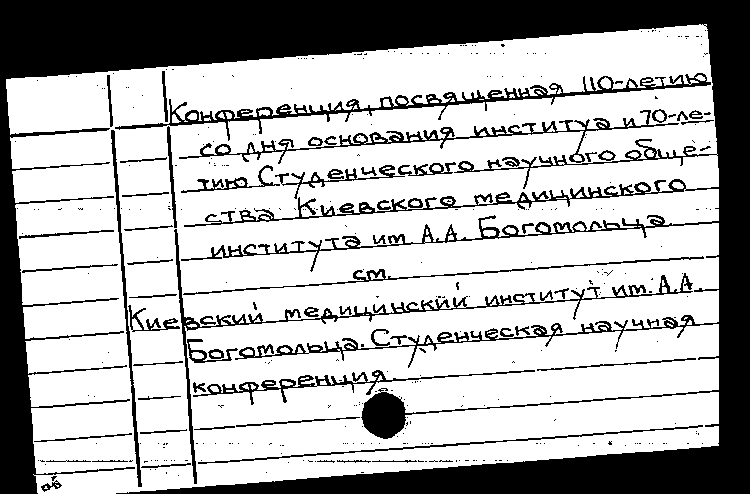 Конференция, посвященная 110-летию
со дня основания институа и 70-ле-
тию Студенческого научного обще-
ства Киевского медицинского
института им А.А. Богомольца
см.
Киевский медицинский институт им. А.А.
Богомольца. Студенческая научная
конференция.